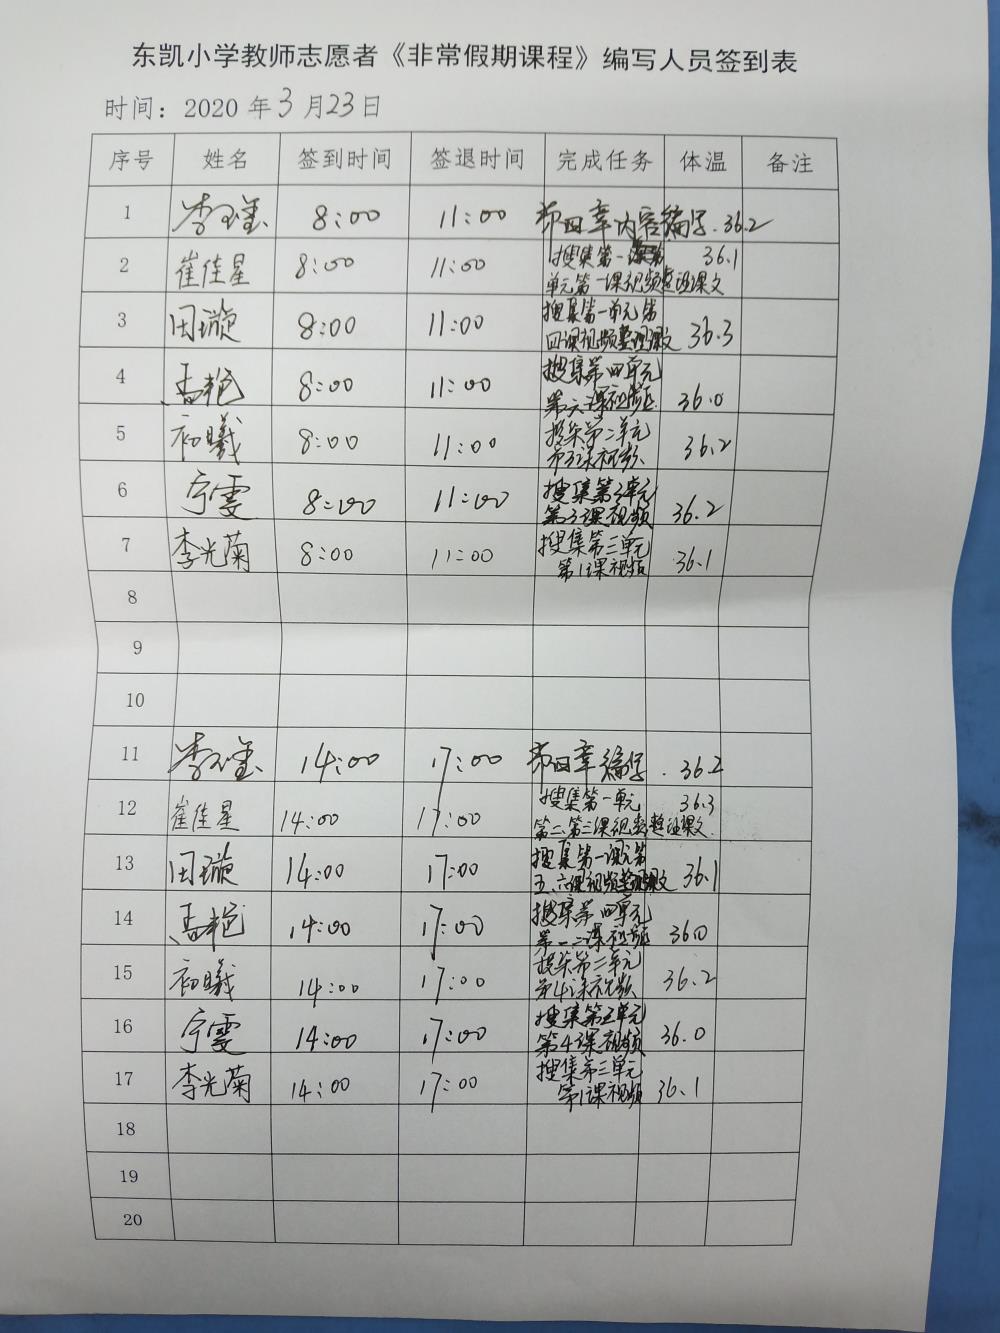 东凯小学教师志愿者《非常假期课程》编写人员签到表
时间：2020年3月23日
序号 姓名 签到时间 签退时间 完成任务 体温 备注
1 李 8:00 11:00 第四章内容编写. 36.2
2 崔佳星 8:00 11:00 搜集第一 36.1
单元第一课视频整理课文
3 田璇 8:00 11:00 搜集第一单元第
四课视频整理课文 36.3
4 8:00 11:00 搜集第四单元
第六课视频 36.0
5 初曦 8:00 11:00 搜集第二单元
第3课视频 36.2
6 宁雯 8:00 11:00 搜集第五单元
第3课视频 36.2
7 李光菊 8:00 11:00 搜集第三单元
第1课视频 36.1
8
9
10
11 李 14:00 17:00 第四章编写. 36.2
12 崔佳星 14:00 17:00 搜集第一单元 36.3
第二、第三课视频整理课文.
13 田璇 14:00 17:00 搜集第一单元第
五、六课视频整理课文 36.1
14 14:00 17:00 搜集第四单元
第一二课视频 36.0
15 初曦 14:00 17:00 搜集第二单元
第4课视频 36.2
16 宁雯 14:00 17:00 搜集第五单元
第4课视频 36.0
17 李光菊 14:00 17:00 搜集第三单元
第1课视频 36.1
18
19
20